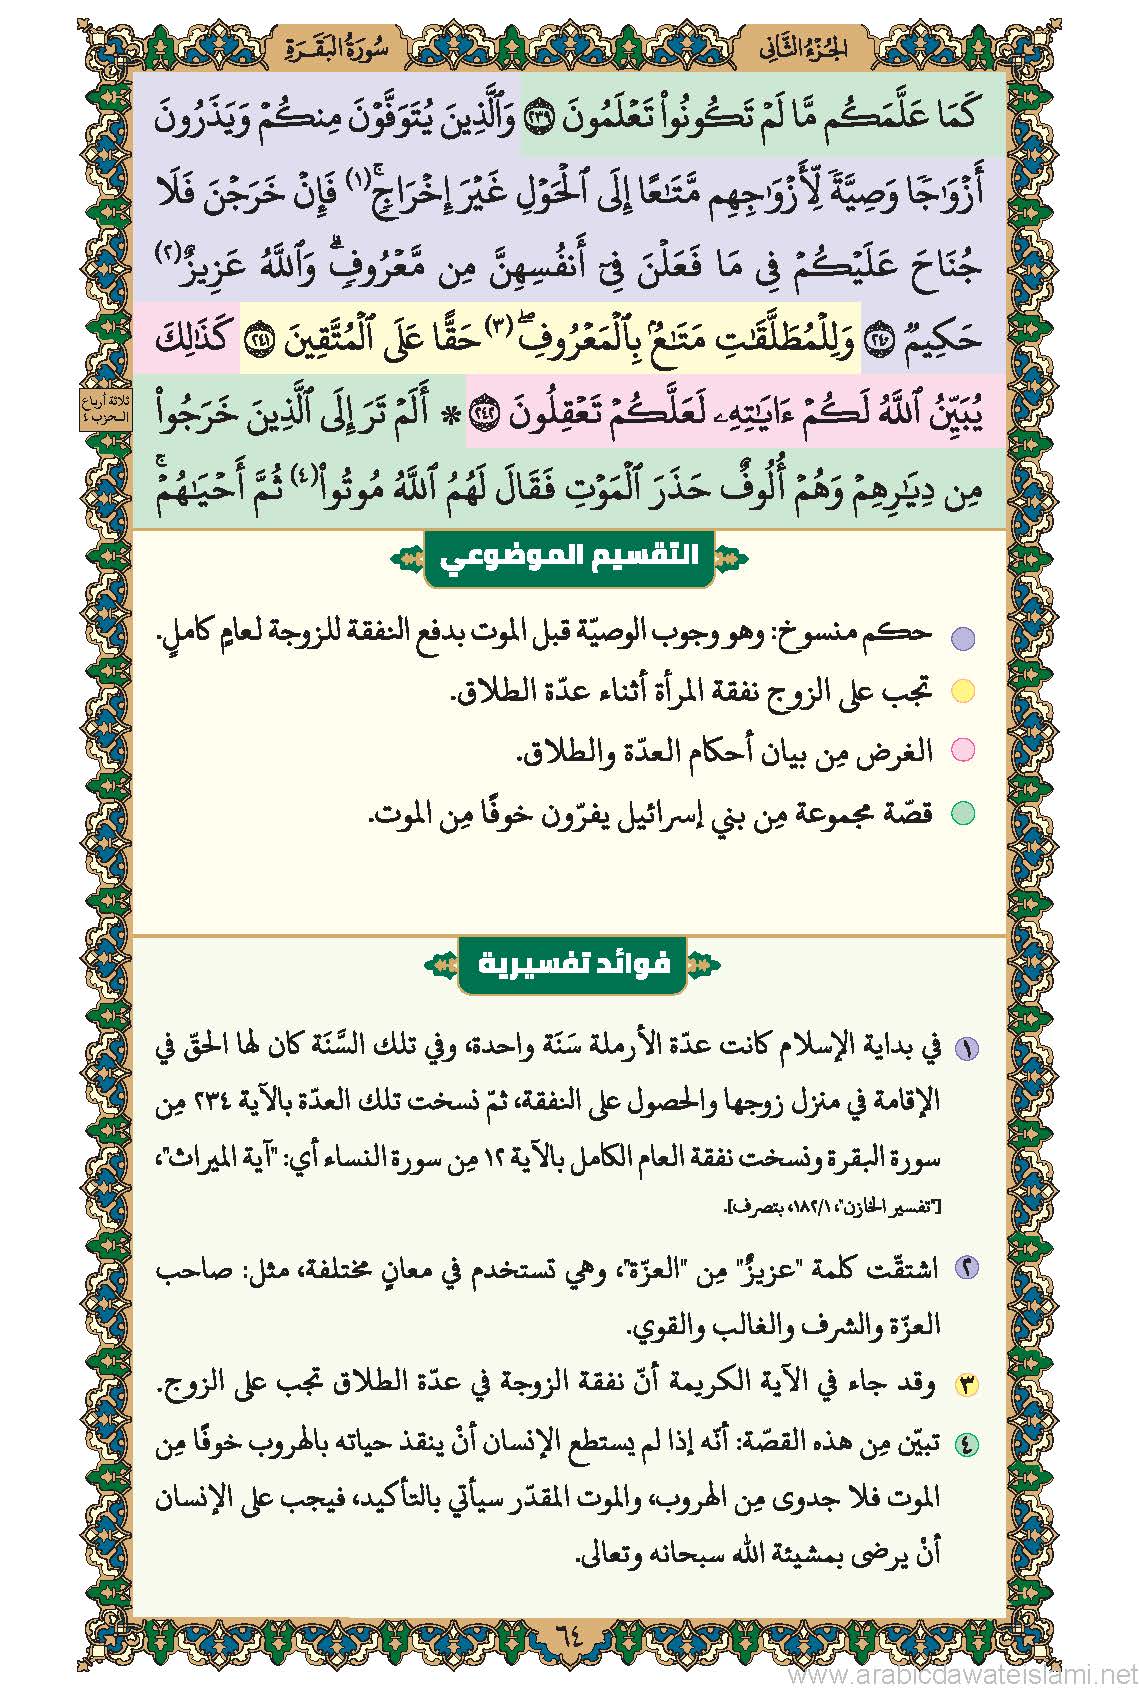 الجُزْءُ الثَّانِي
سُورَةُ البَقَرَةِ
كَمَا عَلَّمَكُم مَّا لَمْ تَكُونُوا۟ تَعْلَمُونَ ٢٣٩ وَٱلَّذِينَ يُتَوَفَّوْنَ مِنكُمْ وَيَذَرُونَ
أَزْوَٰجًا وَصِيَّةً لِّأَزْوَٰجِهِم مَّتَٰعًا إِلَى ٱلْحَوْلِ غَيْرَ إِخْرَاجٍ ۚ (١) فَإِنْ خَرَجْنَ فَلَا
جُنَاحَ عَلَيْكُمْ فِى مَا فَعَلْنَ فِىٓ أَنفُسِهِنَّ مِن مَّعْرُوفٍ ۗ وَٱللَّهُ عَزِيزٌ (٢)
حَكِيمٌ ٢٤٠ وَلِلْمُطَلَّقَٰتِ مَتَٰعٌۢ بِٱلْمَعْرُوفِ ۖ (٣) حَقًّا عَلَى ٱلْمُتَّقِينَ ٢٤١ كَذَٰلِكَ
يُبَيِّنُ ٱللَّهُ لَكُمْ ءَايَٰتِهِۦ لَعَلَّكُمْ تَعْقِلُونَ ٢٤٢ * أَلَمْ تَرَ إِلَى ٱلَّذِينَ خَرَجُوا۟
ثلاثة أرباع
الحزب ٤
مِن دِيَٰرِهِمْ وَهُمْ أُلُوفٌ حَذَرَ ٱلْمَوْتِ فَقَالَ لَهُمُ ٱللَّهُ مُوتُوا۟ (٤) ثُمَّ أَحْيَٰهُمْ ۚ
التقسيم الموضوعي
حكم منسوخ: وهو وجوب الوصيّة قبل الموت بدفع النفقة للزوجة لعامٍ كاملٍ.
تجب على الزوج نفقة المرأة أثناء عدّة الطلاق.
الغرض مِن بيان أحكام العدّة والطلاق.
قصّة مجموعة مِن بني إسرائيل يفرّون خوفًا مِن الموت.
فوائد تفسيرية
١ في بداية الإسلام كانت عدّة الأرملة سَنَة واحدة، وفي تلك السَّنَة كان لها الحقّ في
الإقامة في منزل زوجها والحصول على النفقة، ثمّ نسخت تلك العدّة بالآية ٢٣٤ مِن
سورة البقرة ونسخت نفقة العام الكامل بالآية ١٢ مِن سورة النساء أي: "آية الميراث"،
["تفسير الخازن"، ١/١٨٢، بتصرف].
٢ اشتقّت كلمة "عزيزٌ" مِن "العزّة"، وهي تستخدم في معانٍ مختلفة، مثل: صاحب
العزّة والشرف والغالب والقوي.
٣ وقد جاء في الآية الكريمة أنّ نفقة الزوجة في عدّة الطلاق تجب على الزوج.
٤ تبيّن مِن هذه القصّة: أنّه إذا لم يستطع الإنسان أنْ ينقذ حياته بالهروب خوفًا مِن
الموت فلا جدوى مِن الهروب، والموت المقدّر سيأتي بالتأكيد، فيجب على الإنسان
أنْ يرضى بمشيئة الله سبحانه وتعالى.
٦٤
www.arabicdawateislami.net